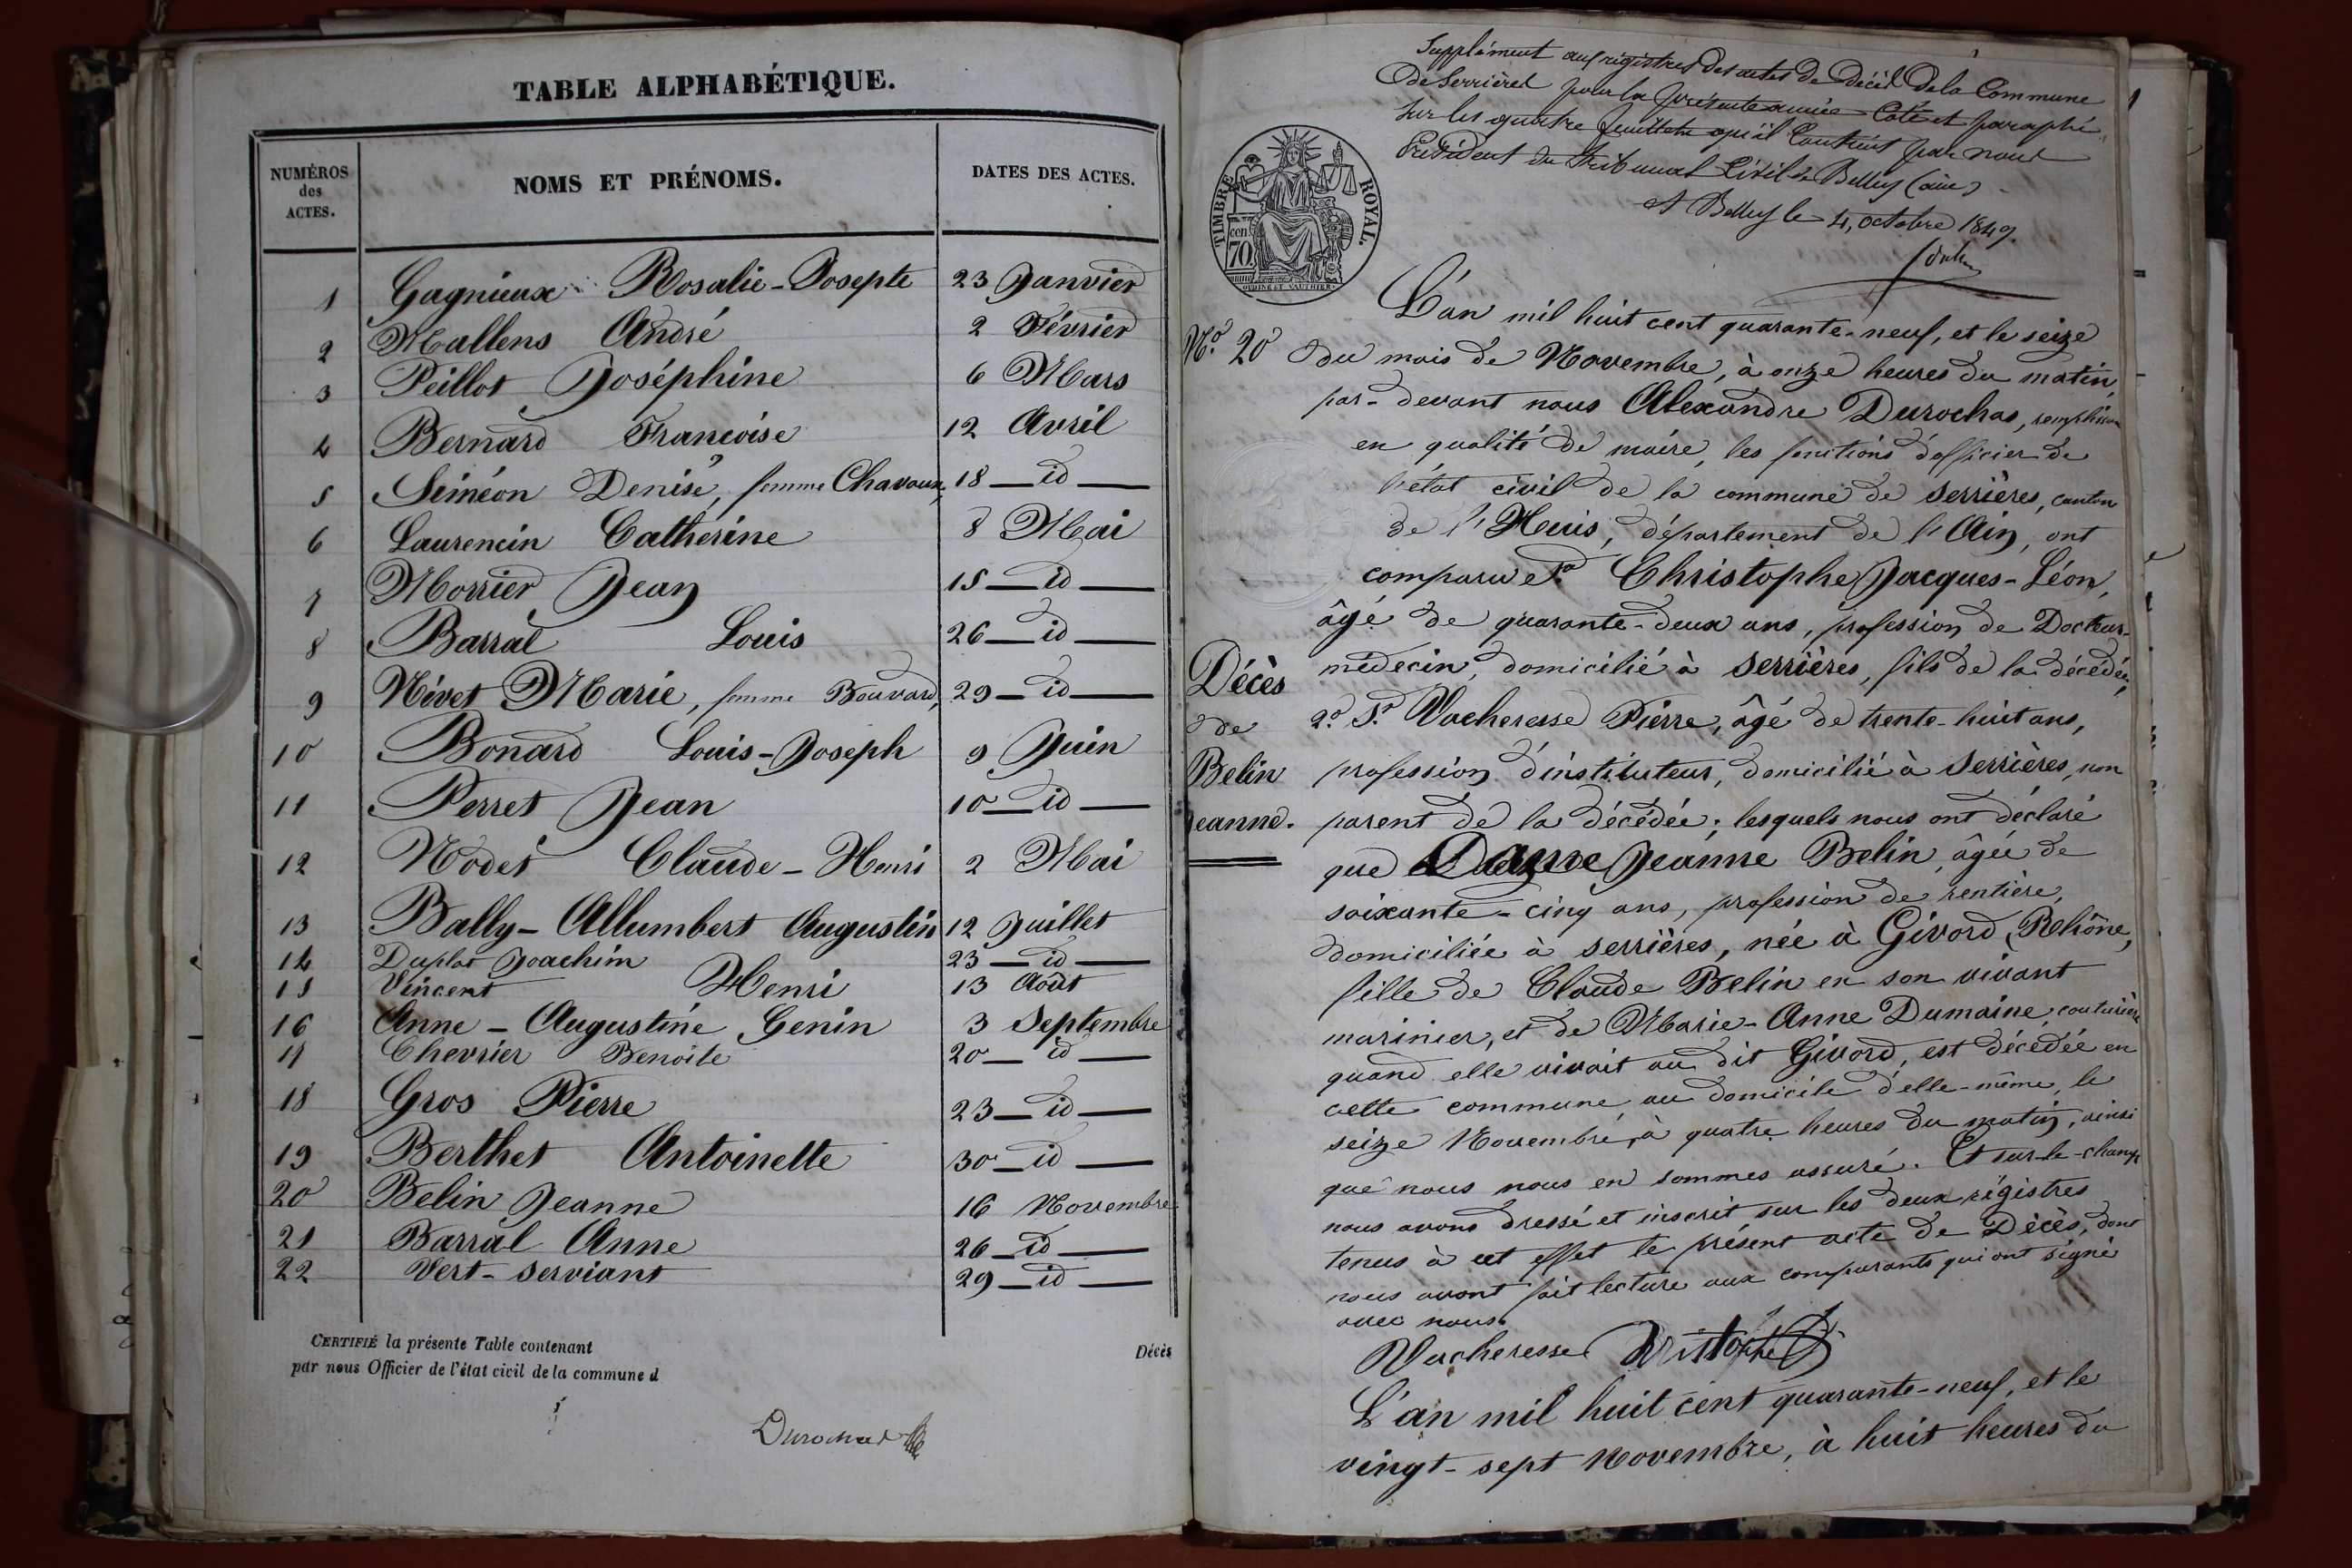 TABLE ALPHABÉTIQUE.
NUMÉROS des ACTES.
NOMS ET PRÉNOMS.
DATES DES ACTES.
1 Gagnieux Rosalie-Josepte 23 Janvier
2 Mallens André 2 Février
3 Peillot Joséphine 6 Mars
4 Bernard Francoise 12 Avril
5 Siméon Denise, femme Chavoux, 18 — id —
6 Laurencin Catherine 8 Mai
7 Morrier Jean 15 — id —
8 Barral Louis 26 — id —
9 Nivet Marie, femme Bouvard, 29 — id —
10 Bonard Louis-Joseph 9 Juin
11 Perret Jean 10 — id —
12 Nodet Claude-Henri 2 Mai
13 Bally-Allumbert Augustin 12 Juillet
14 Duplat Joachim 23 — id —
15 Vincent Henri 13 Août
16 Anne-Augustine Genin 3 Septembre
17 Chevrier Benoîte 20 — id —
18 Gros Pierre 23 — id —
19 Berthet Antoinette 30 — id —
20 Belin Jeanne 16 Novembre
21 Barral Anne 26 — id —
22 Vert-Serviant 29 — id —
CERTIFIÉ la présente Table contenant Décès
par nous Officier de l'état civil de la commune d
Durochat
Supplément aux régistres des actes de Décès de la Commune
de Serrières pour la présente année Coté et paraphé
sur les quatre feuillets qu'il Contient par nous
Président du Tribunal Civil de Belley (ain)
A Belley le 4, octobre 1849.
TIMBRE ROYAL.
70 cen.
L'an mil huit cent quarante-neuf, et le seize
N.º 20 du mois de Novembre, à onze heures du matin,
par-devant nous Alexandre Durochas, remplissan
en qualité de maire, les fonctions d'officier de
l'état civil de la commune de Serrières, canton
de l'Huis, département de l'Ain, ont
comparu Christophe Jacques-Léon,
âgé de quarante-deux ans, profession de Docteur-
médecin, domicilié à Serrières, fils de la décédée,
2.º S.r Vacheresse Pierre, âgé de trente-huit ans,
profession d'instituteur, domicilié à Serrières, non
parent de la décédée; lesquels nous ont déclaré
Décès
de
Belin
Jeanne.
que Dame Jeanne Belin, âgée de
soixante-cinq ans, profession de rentière,
domiciliée à Serrières, née à Givord, Rhône,
fille de Claude Belin en son vivant
marinier, et de Marie-Anne Dumaine, couturière
quand elle vivait au dit Givord, est décédée en
cette commune, au domicile d'elle-même, le
seize Novembre, à quatre heures du matin, ainsi
que nous nous en sommes assuré. Et sur-le-champ
nous avons dressé et inscrit sur les deux régistres
tenus à cet effet le présent acte de Décès, dont
nous avont fait lecture aux comparants qui ont signé
avec nous.
Vacheresse Christophe
L'an mil huit cent quarante-neuf, et le
vingt-sept Novembre, à huit heures du